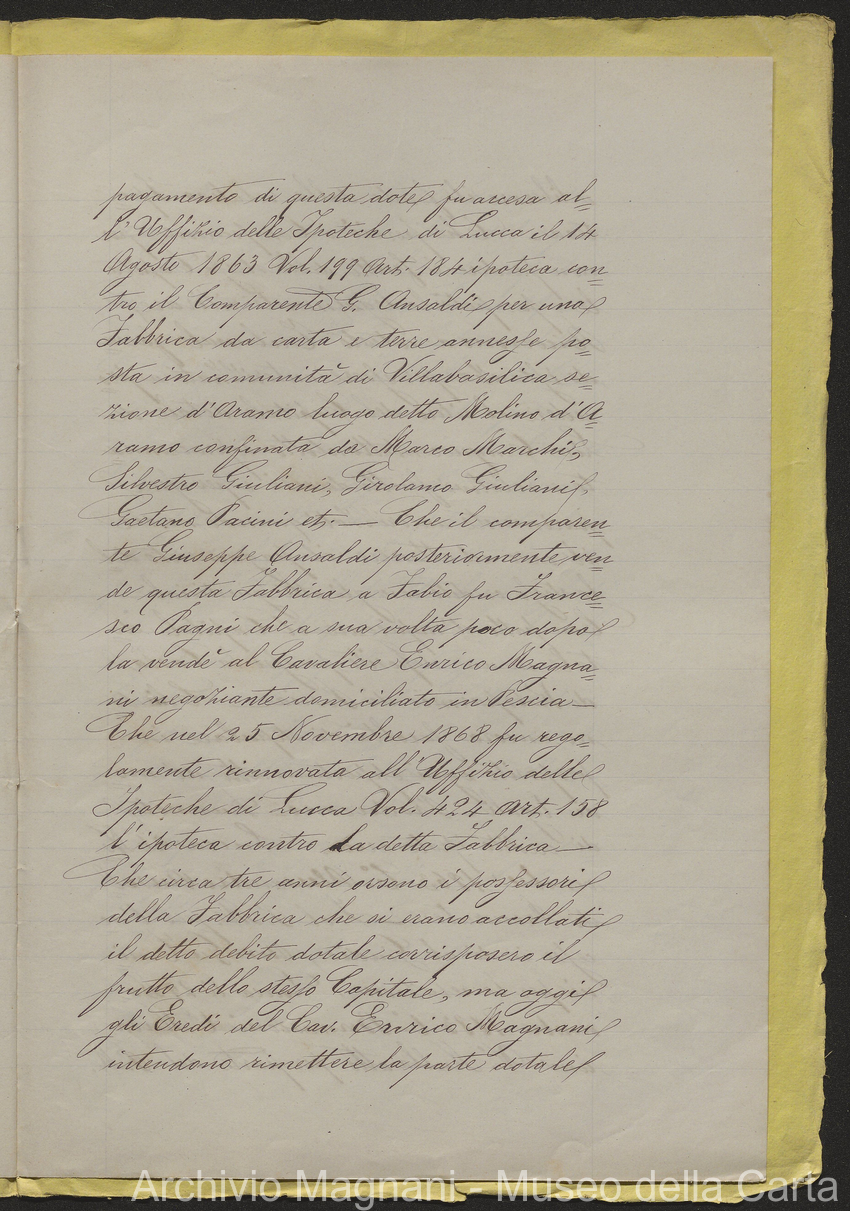 pagamento di questa dote fu accesa al=
l'Uffizio delle Ipoteche di Lucca il 14
Agosto 1863 Vol. 199 Art. 184 ipoteca con=
tro il Comparente G. Ansaldi per una
Fabbrica da carta e terre annesse po=
sta in comunità di Villabasilica se=
zione d'Aramo luogo detto Molino d'A=
ramo confinata da Marco Marchi,
Silvestro Giuliani, Girolamo Giuliani,
Gaetano Pacini et. — Che il comparen=
te Giuseppe Ansaldi posteriormente ven=
de questa Fabbrica a Fabio fu France=
sco Pagni che a sua volta poco dopo
la vendè al Cavaliere Enrico Magna=
ni negoziante domiciliato in Pescia —
Che nel 25 Novembre 1868 fu rego=
lamente rinnovata all'Uffizio delle
Ipoteche di Lucca Vol. 424 Art. 158
l'ipoteca contro la detta Fabbrica —
Che circa tre anni orsono i possessori
della Fabbrica che si erano accollati
il detto debito dotale corrisposero il
frutto dello stesso Capitale, ma oggi
gli Eredi del Cav. Enrico Magnani
intendono rimettere la parte dotale
Archivio Magnani - Museo della Carta